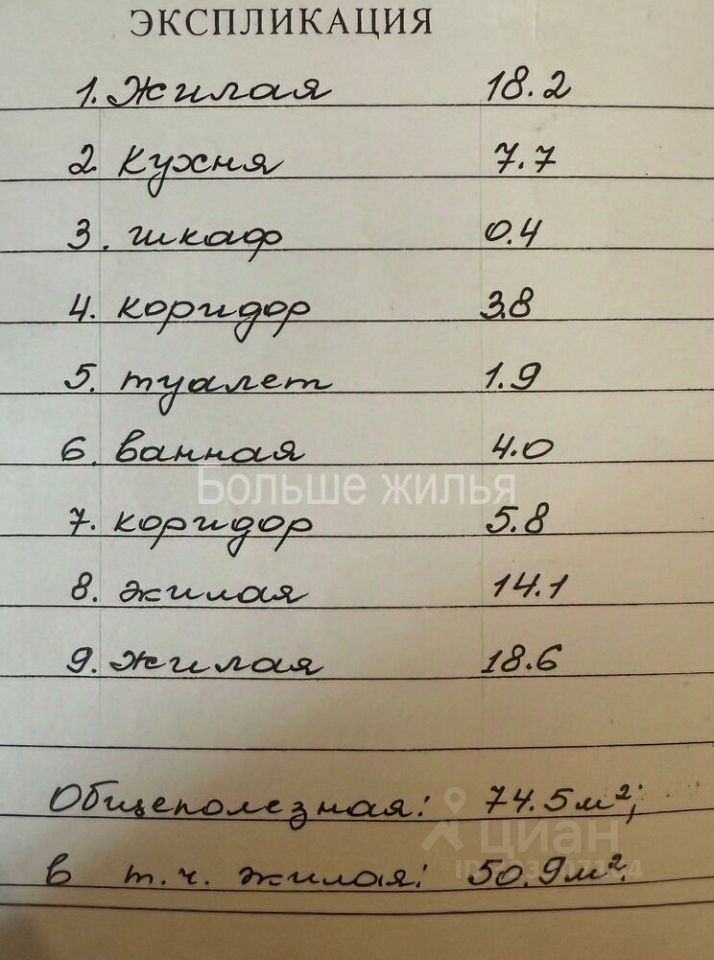 ЭКСПЛИКАЦИЯ
1. Жилая 18.2
2. Кухня 7.7
3. шкаф 0.4
4. коридор 3.8
5. туалет 1.9
6. ванная 4.0
Больше жилья
7. коридор 5.8
8. жилая 14.1
9. жилая 18.6
Общеполезная: 74.5 м²;
циан
в т.ч. жилая: 50.9 м².